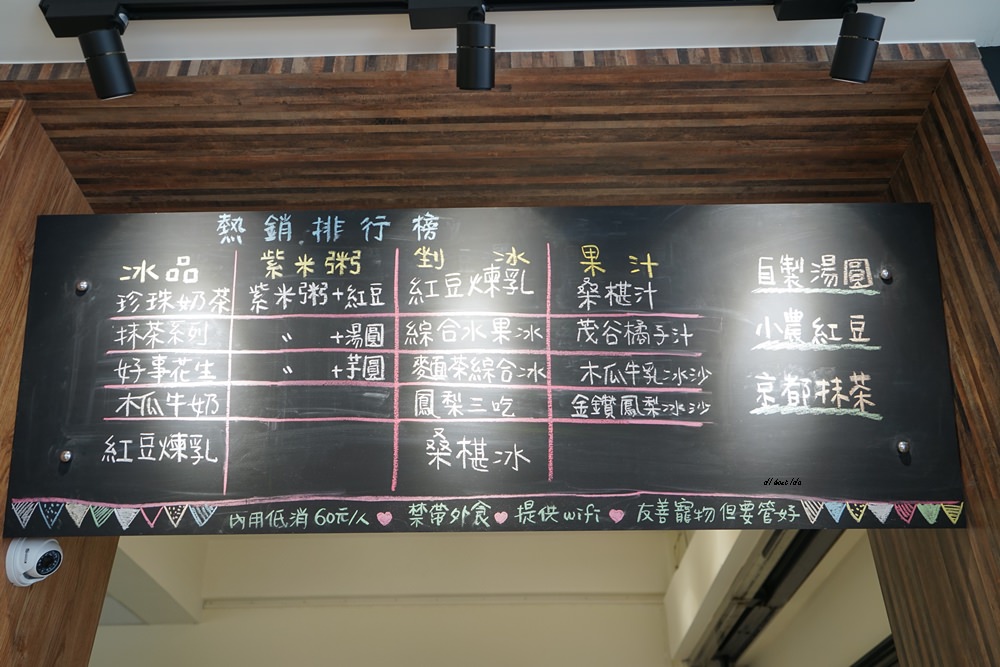 熱銷排行榜
冰品 紫米粥 剉冰 果汁
珍珠奶茶 紫米粥+紅豆 紅豆煉乳 桑椹汁
抹茶系列 〃 +湯圓 綜合水果冰 茂谷橘子汁
好事花生 〃 +芋圓 麵茶綜合冰 木瓜牛乳冰沙
木瓜牛奶 鳳梨三吃 金鑚鳳梨冰沙
紅豆煉乳 桑椹冰
自製湯圓
小農紅豆
京都抹茶
內用低消60元/人 ♥ 禁帶外食 ♥ 提供wifi ♥ 友善寵物但要管好